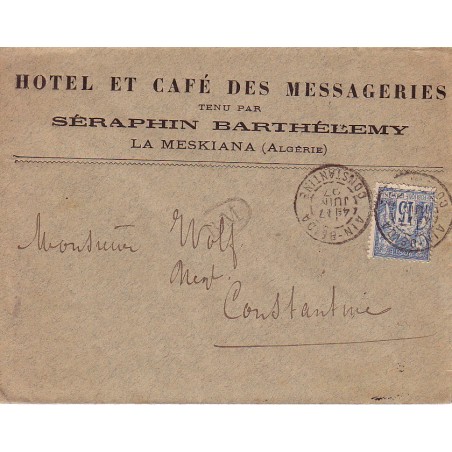 HOTEL ET CAFÉ DES MESSAGERIES
TENU PAR
SÉRAPHIN BARTHÉLEMY
LA MESKIANA (ALGÉRIE)
AIN-BEIDA
CONSTANTINE
JUIN
15
Monsieur Wolf
Negt
Constantine